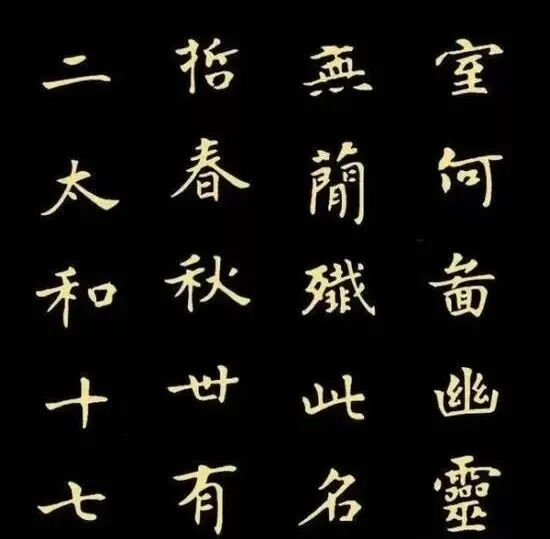 室何啚幽靈
無簡殲此名
哲春秋卅有
二太和十七